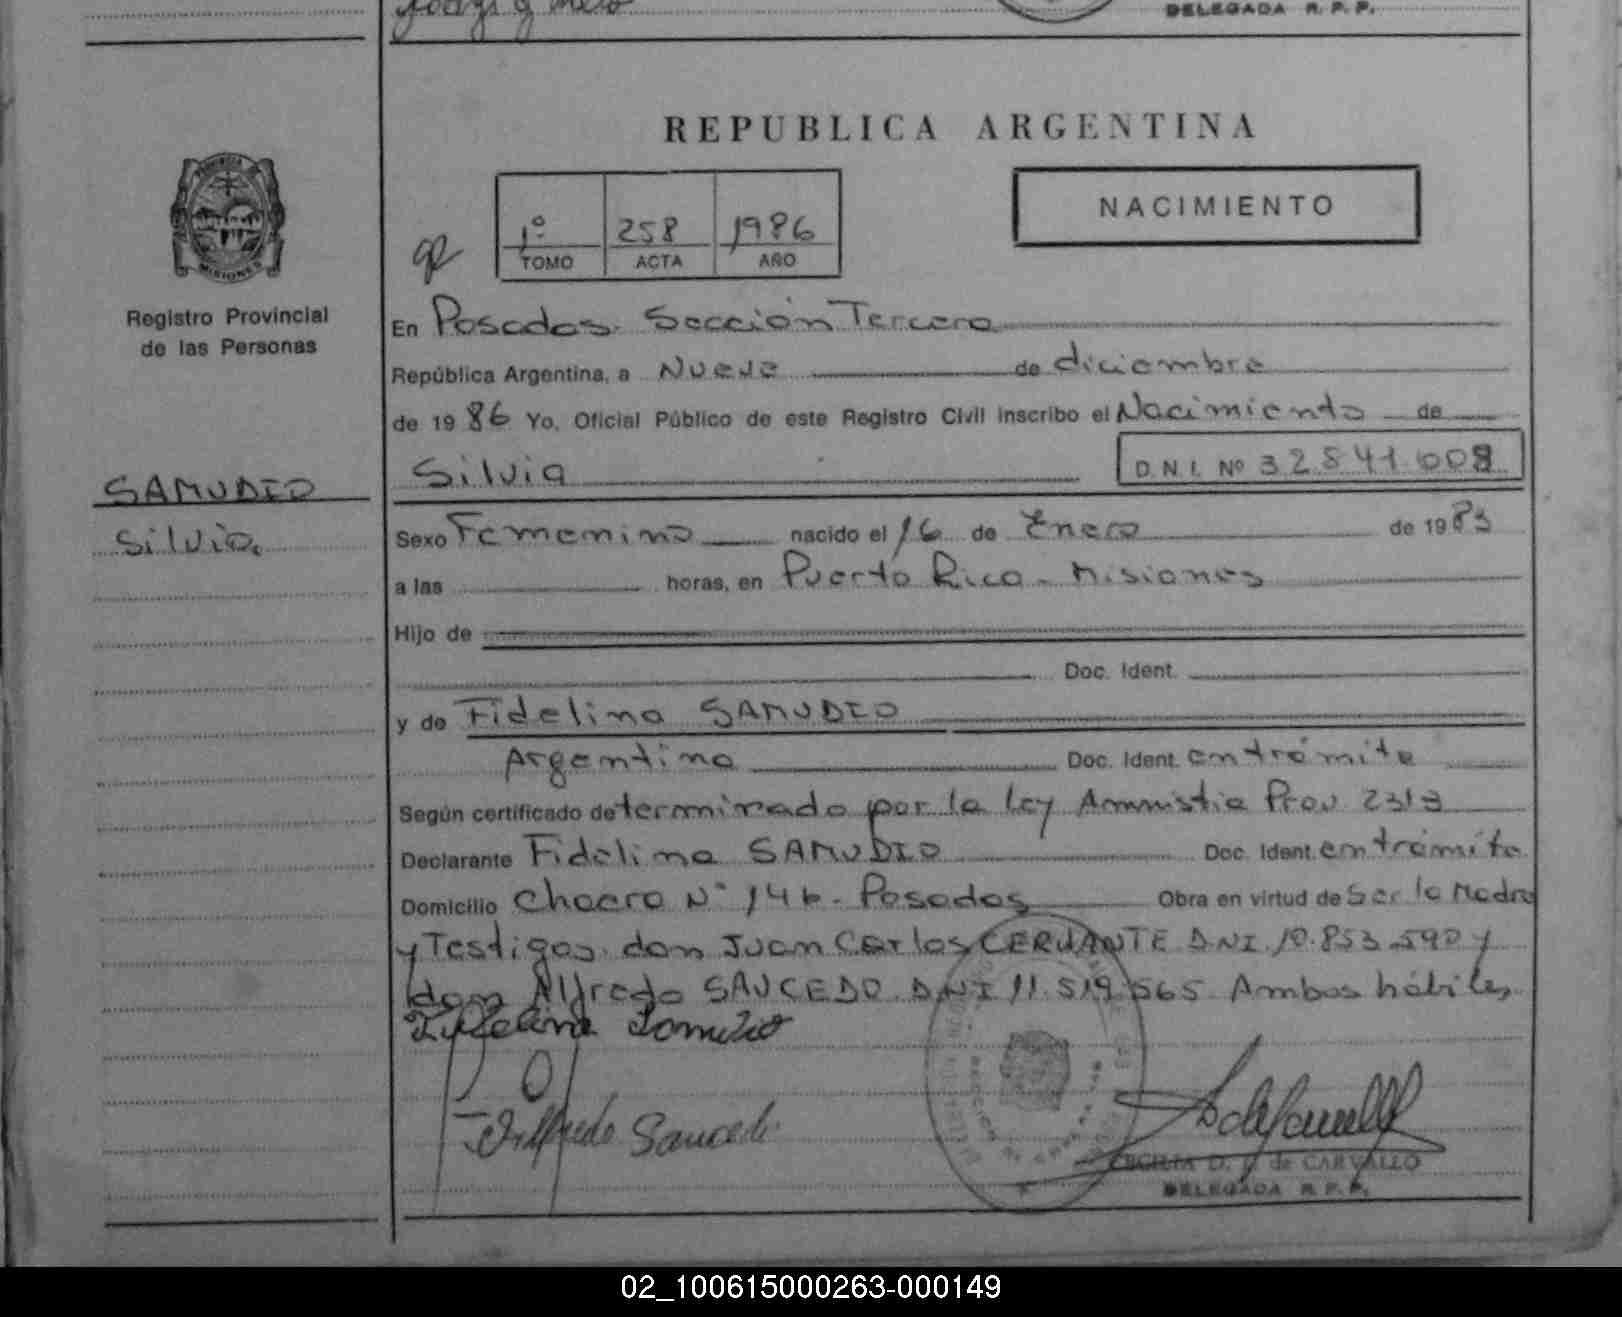 DELEGADA R. P. P.
REPUBLICA ARGENTINA
PROVINCIA
MISIONES
Registro Provincial
de las Personas
1º 258 1986
TOMO ACTA AÑO
NACIMIENTO
En Posadas Sección Tercera
República Argentina, a Nueve de diciembre
de 1986 Yo, Oficial Público de este Registro Civil inscribo el Nacimiento de
Silvia D.N.I. Nº 32.841.008
SAMUDIO
Silvia.
Sexo Femenino nacido el 16 de Enero de 1983
a las horas, en Puerto Rico - Misiones
Hijo de
Doc. Ident.
y de Fidelina SAMUDIO
Argentina Doc. Ident. en trámite
Según certificado determinado por la ley Amnistia Prov 2313
Declarante Fidelina SAMUDIO Doc. Ident. en trámite
Domicilio Chacra Nº 146 - Posadas Obra en virtud de Ser la Madre
y Testigos don Juan Carlos CERVANTE DNI 10.853.590 y
don Alfredo SAUCEDO DNI 11.519.565 Ambos hábiles
Fidelina Samudio
Alfredo Saucedo
CECILIA D. de CARVALLO
DELEGADA R. P. P.
02_100615000263-000149